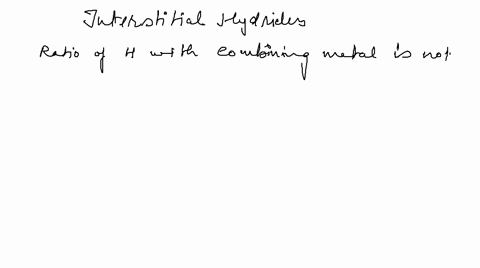 Interstitial Hydrides
Ratio of H with combining metal is not